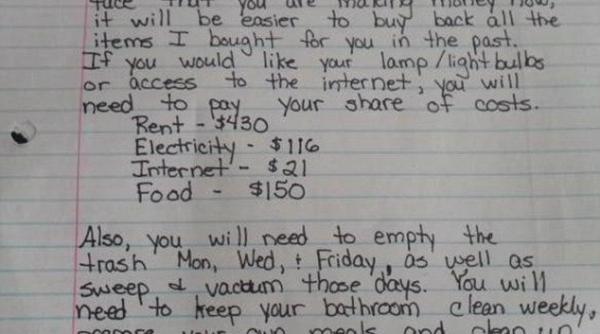 that you are making money now,
it will be easier to buy back all the
items I bought for you in the past.
If you would like your lamp/lightbulbs
or access to the internet, you will
need to pay your share of costs.
Rent - $430
Electricity - $116
Internet - $21
Food - $150
Also, you will need to empty the
trash Mon, Wed, & Friday, as well as
sweep & vacuum those days. You will
need to keep your bathroom clean weekly,
your own meals and clean up